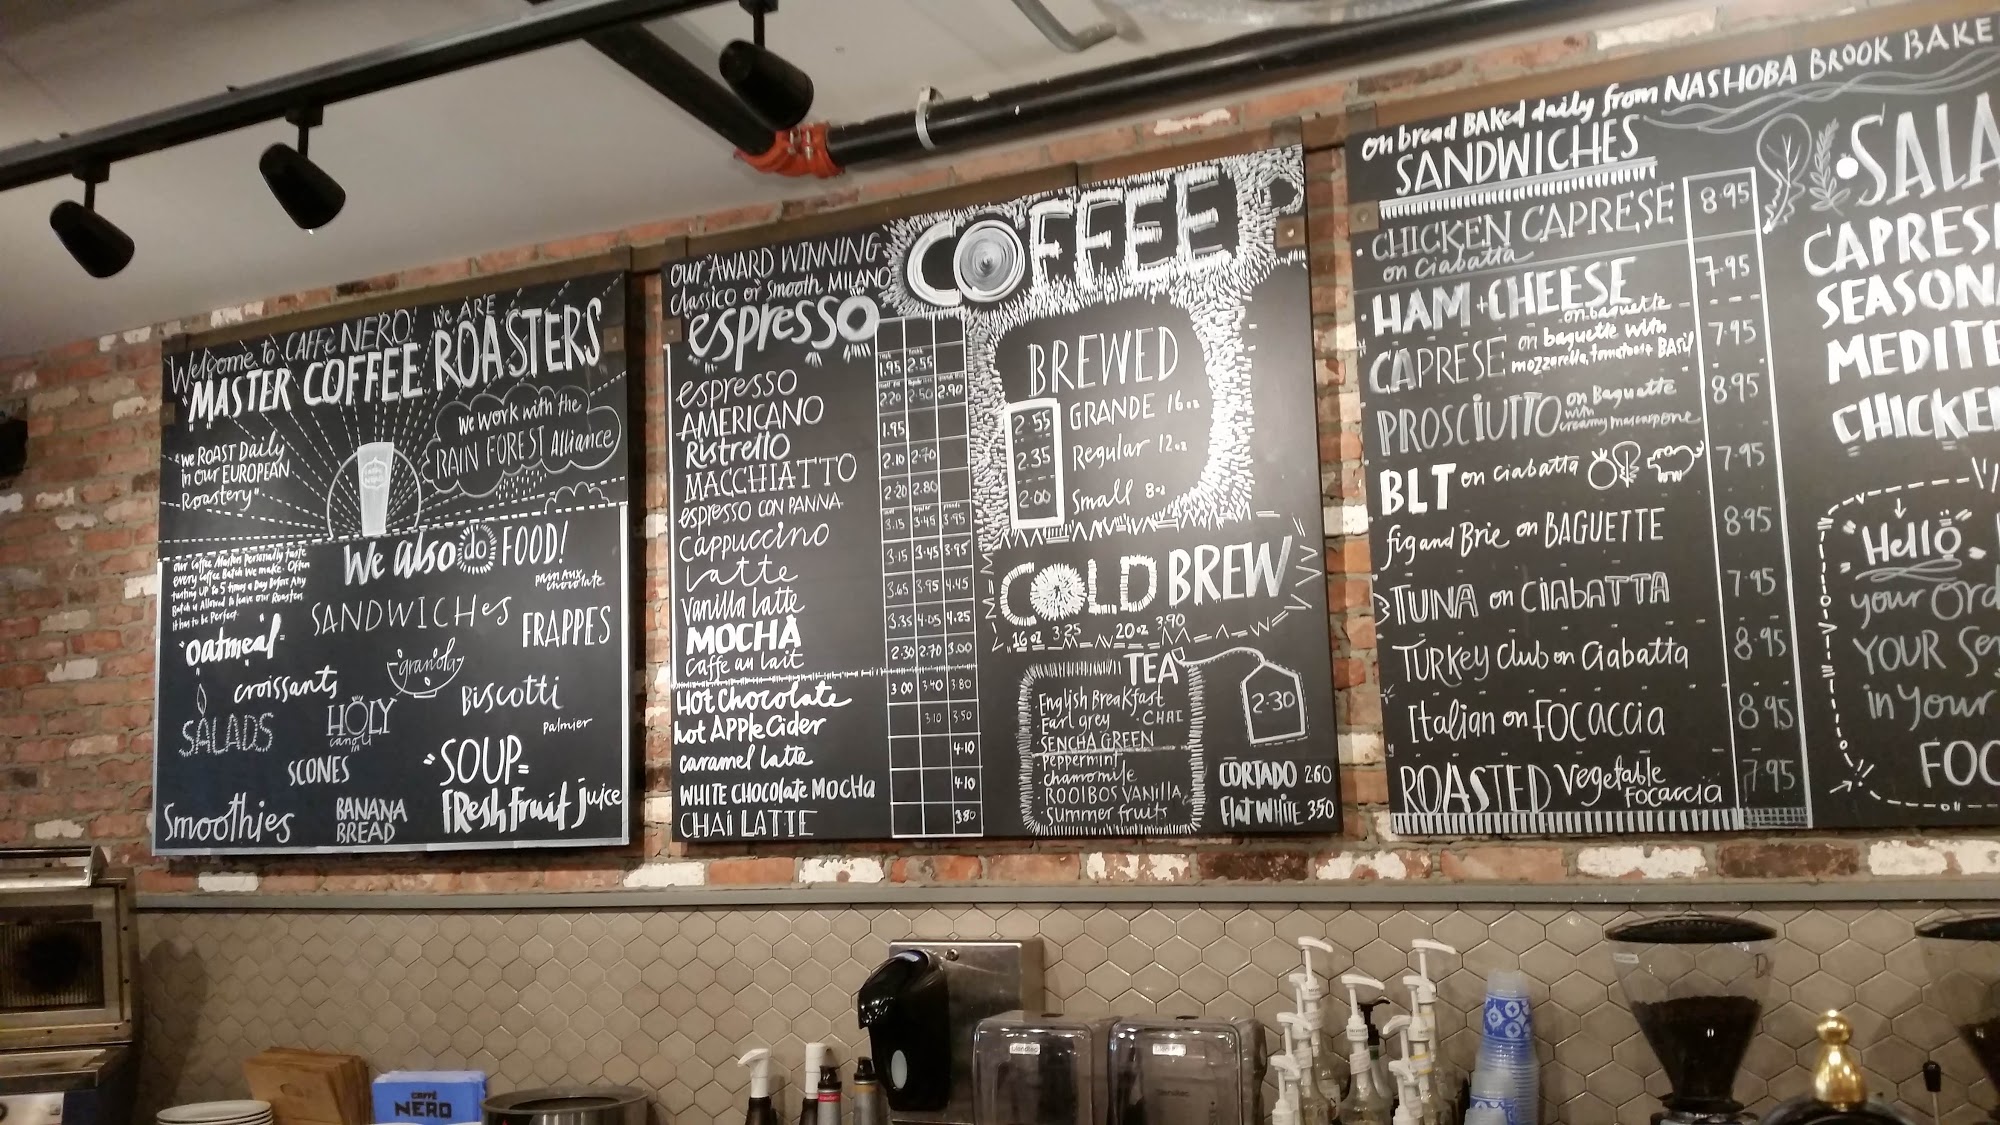 Welcome to CAFFè NERO! We ARE
"MASTER COFFEE ROASTERS
"we ROAST Daily
in our EUROPEAN
Roastery"
we work with the
RAIN FOREST Alliance
We also do FOOD!
our Coffee Masters Personally taste
every Coffee Batch We make. Often
tasting UP to 5 times a Day Before Any
Batch is Allowed to leave our Roastery
It has to be Perfect.
pain aux
chocolate
SANDWICHes
FRAPPES
"oatmeal"
granola
croissants
Biscotti
SALADS
HOLY
canoli
palmier
SCONES
"SOUP
FResh fruit juice
Smoothies
BANANA
BREAD
our "AWARD WINNING
Classico or Smooth MILANO
espresso
COFFEE
espresso 1.95 2.55
AMERICANO 2.20 2.50 2.90
Ristretto 1.95
MACCHIATTO 2.10 2.70
espresso CON PANNA 2.20 2.80
Cappuccino 3.15 3.45 3.95
Latte 3.15 3.45 3.95
Vanilla latte 3.65 3.95 4.45
MOCHA 3.35 4.05 4.25
Caffe au lait 2.30 2.70 3.00
Hot Chocolate 3.00 3.40 3.80
hot APPle Cider 3.10 3.50
caramel latte 4.10
WHITE CHOCOlate MOCHa 4.10
CHAI LATTE 3.80
BREWED
2.55 GRANDE 16oz
2.35 Regular 12oz
2.00 Small 8oz
COLD BREW
16oz 3.25 20oz 3.90
TEA
2.30
English Breakfast
Earl grey CHAI
SENCHA GREEN
Peppermint
chamomile
ROOIBOS VANILLA
Summer fruits
CORTADO 2.60
Flat WHITE 3.50
on bread BAKed daily from NASHOBA BROOK BAKE
SANDWICHES
CHICKEN CAPRESE 8.95
on Ciabatta
HAM + CHEESE 7.95
on baguette
CAPRESE on baguette with 7.95
mozzarella, tomatoes + BASil
PROSCIUTTO on Baguette 8.95
with
creamy mascarpone
BLT on ciabatta 7.95
fig and Brie on BAGUETTE 8.95
TUNA on CIABATTA 7.95
TURKey Club on Ciabatta 8.95
Italian on FOCACCIA 8.95
ROASTED Vegetable 7.95
FOCACCIA
SALA
CAPRES
SEASON
MEDITE
CHICKEN
Hello
your Ord
YOUR Se
in your
FOO
CAFFÈ
NERO
blendtec